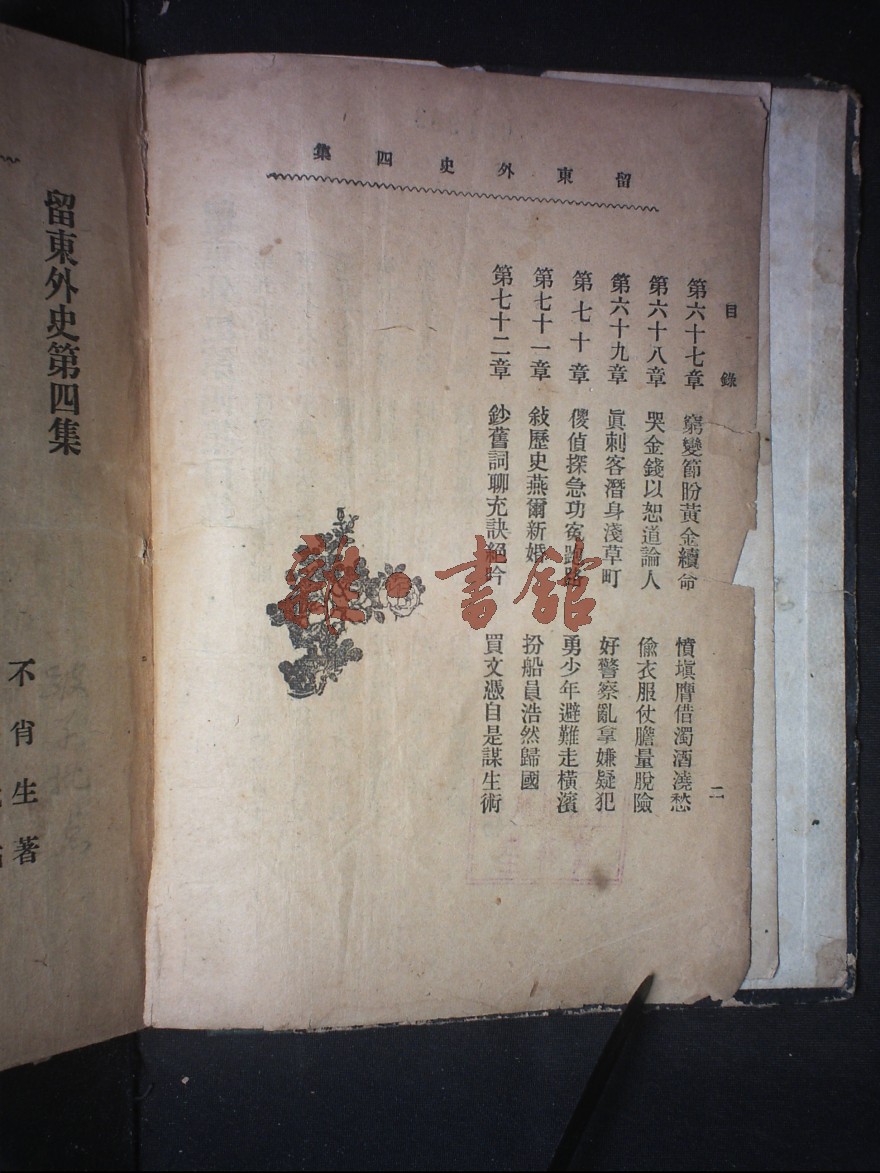 留東外史四集
目錄
二
第六十七章 窮變節盼黃金續命 憤塡膺借濁酒澆愁
第六十八章 哭金錢以恕道論人 偸衣服仗膽量脫險
第六十九章 眞刺客潛身淺草町 好警察亂拿嫌疑犯
第七十章 儍偵探急功冤跑路 勇少年避難走橫濱
第七十一章 敍歷史燕爾新婚 扮船員浩然歸國
第七十二章 鈔舊詞聊充訣絕吟 買文憑自是謀生術
留東外史第四集
不肖生著
雜·書館